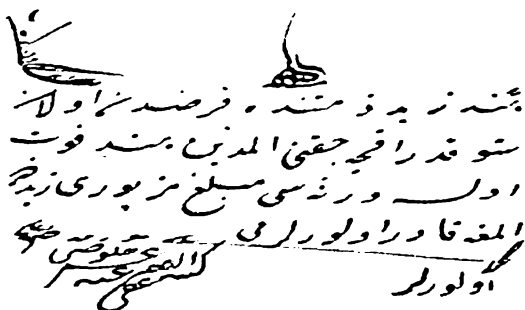 هند زيد ذمتنده قرضدن اولان
شو قدر اقچه حقنى المدين هند فوت
اولسه ورثه سى مبلغ مزبورى زيددن
المغه قادر اولورلر مى
اولورلر